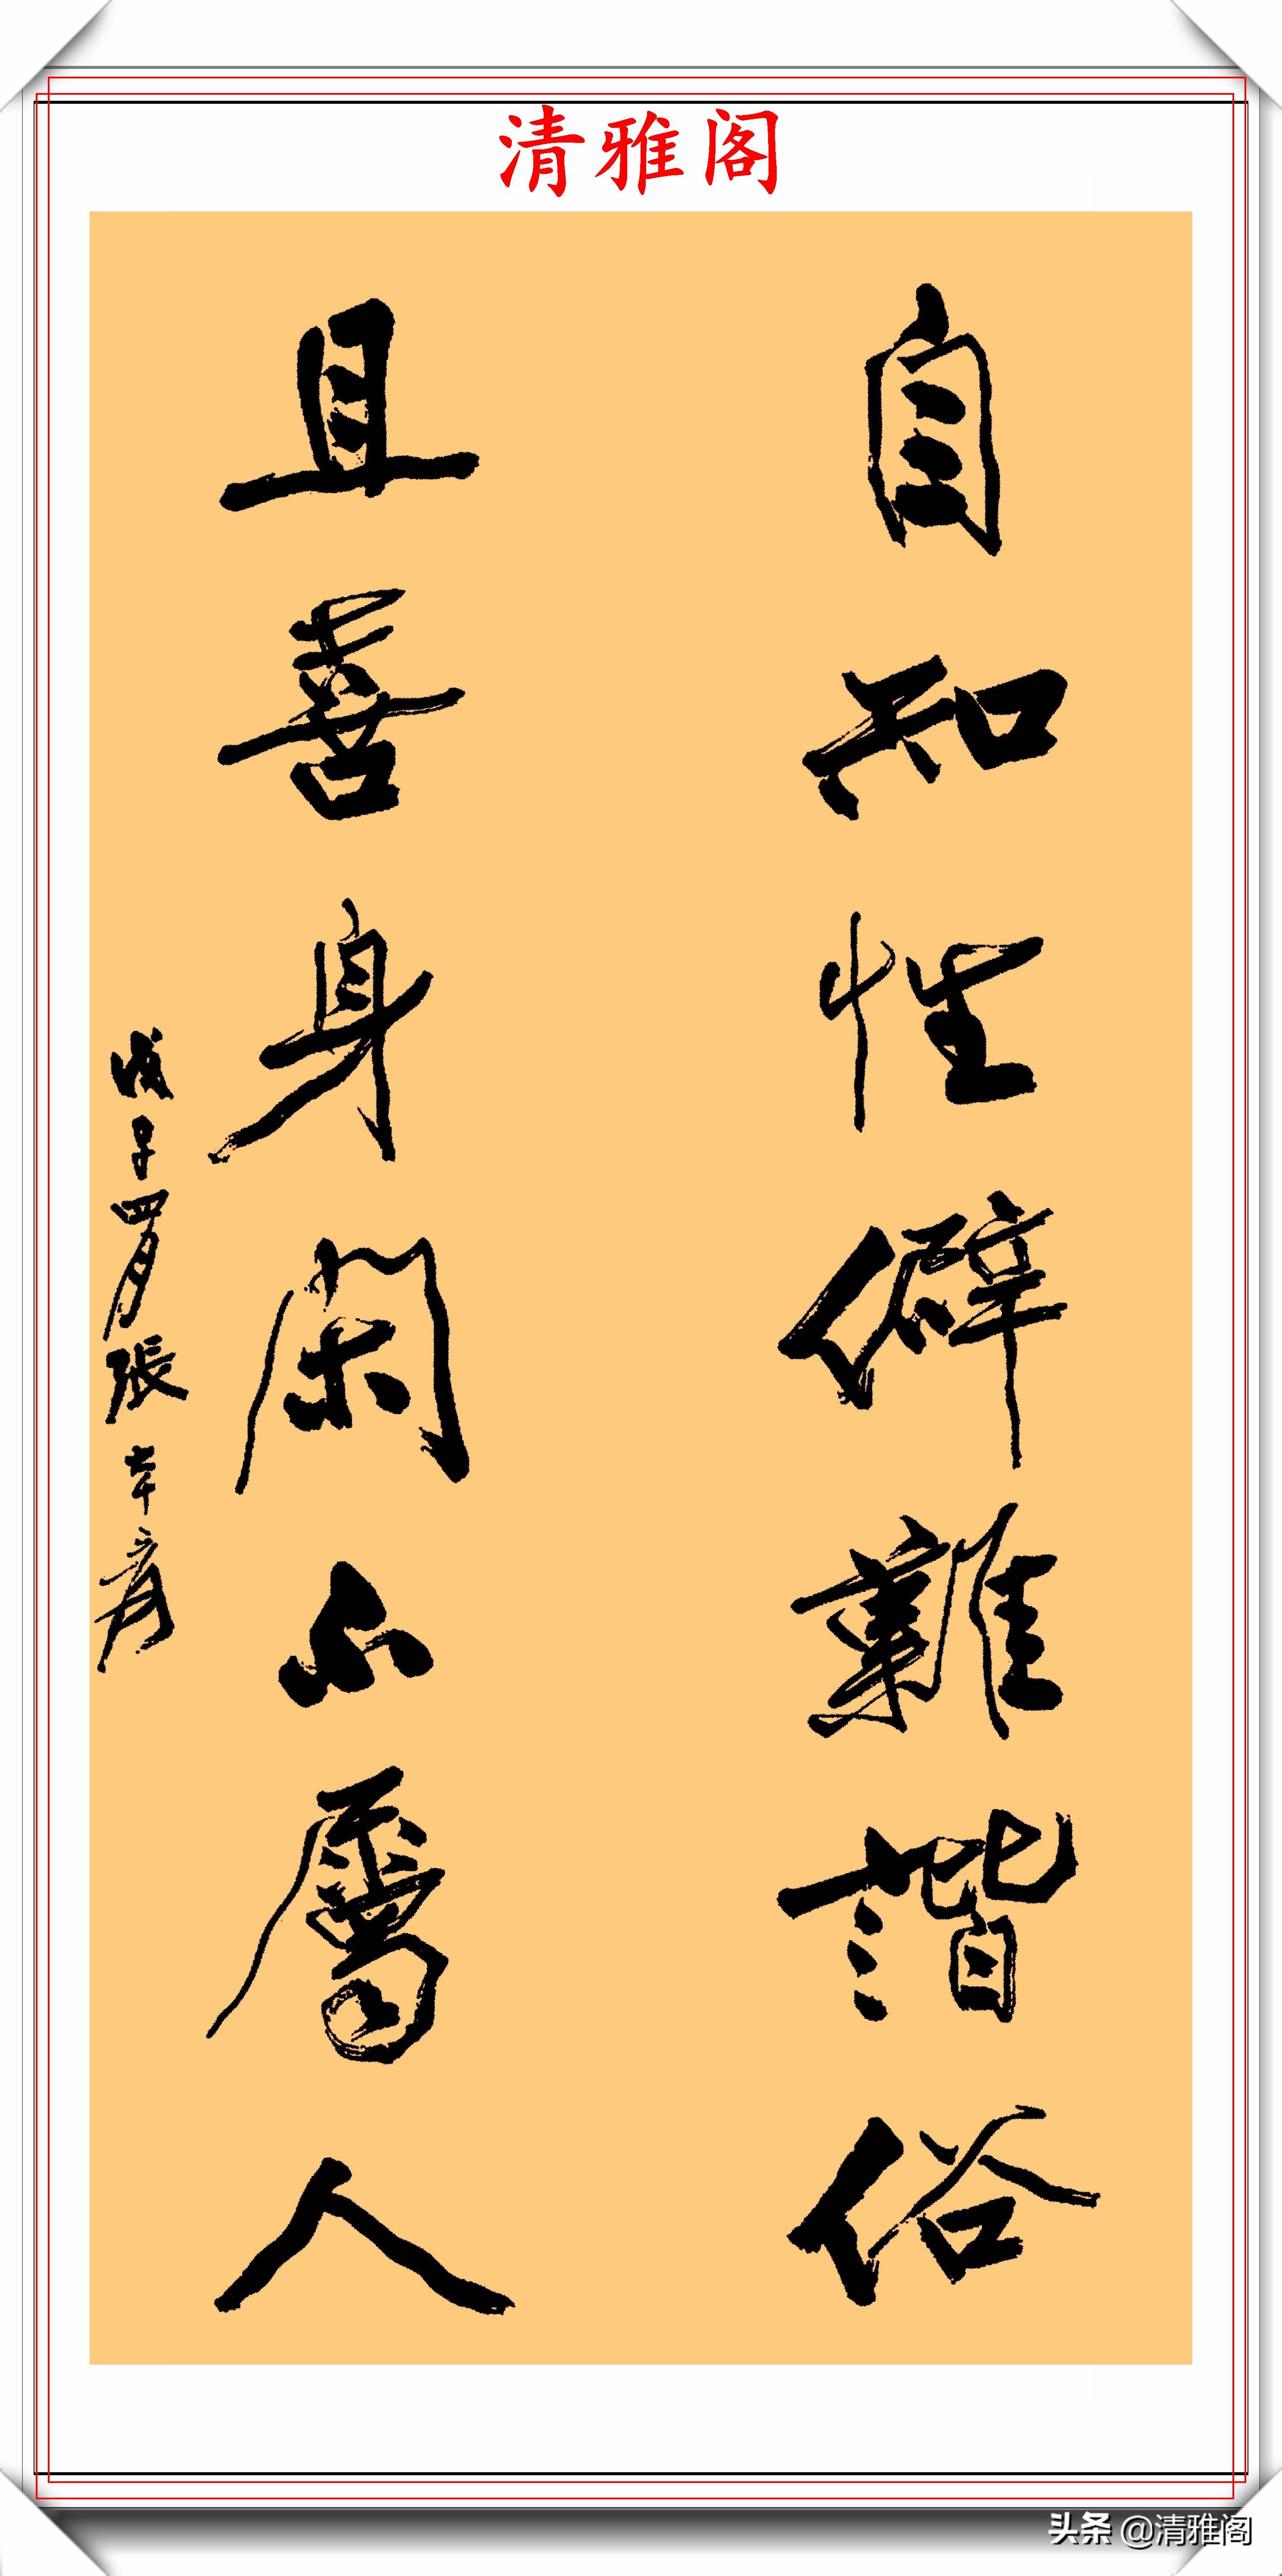 清雅阁
自知性僻難諧俗
且喜身閑不屬人
戊子四月張大千爰
头条 @清雅阁